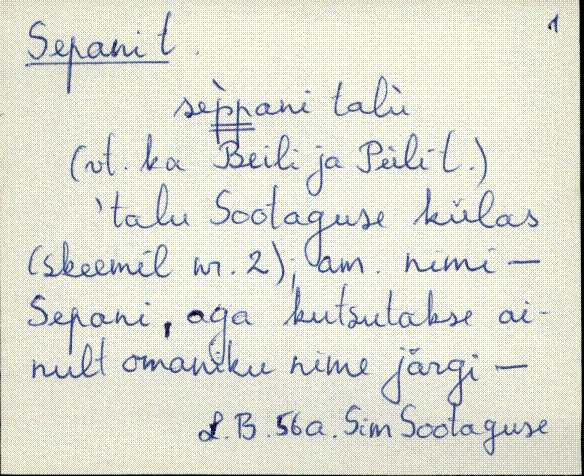 1
Sepani t.
sèppani talù
(vt. ka Beili ja Peili t.)
'talu Sootaguse külas
(skeemil nr. 2); am. nimi –
Sepani, aga kutsutakse ai-
nult omaniku nime järgi –
L.B. 56a. Sim Sootaguse